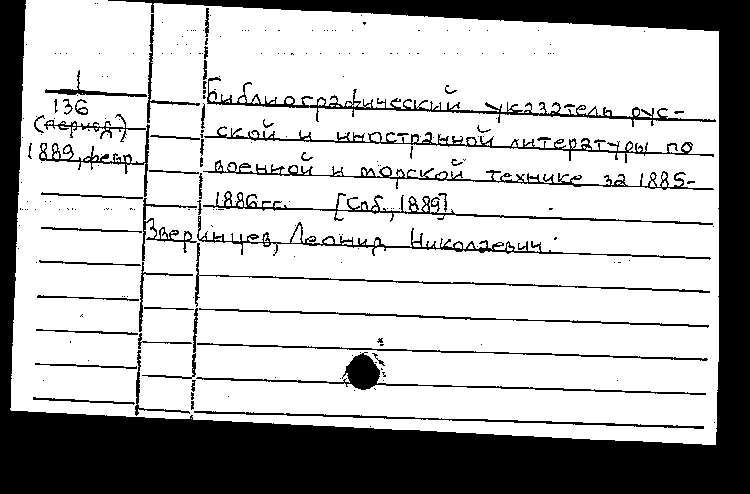 I
136
(период.)
1889, февр.
Библиографический указатель рус-
ской и иностранной литературы по
военной и морской технике за 1885-
1886гг. [Спб., 1889].
Зверинцев, Леонид Николаевич.